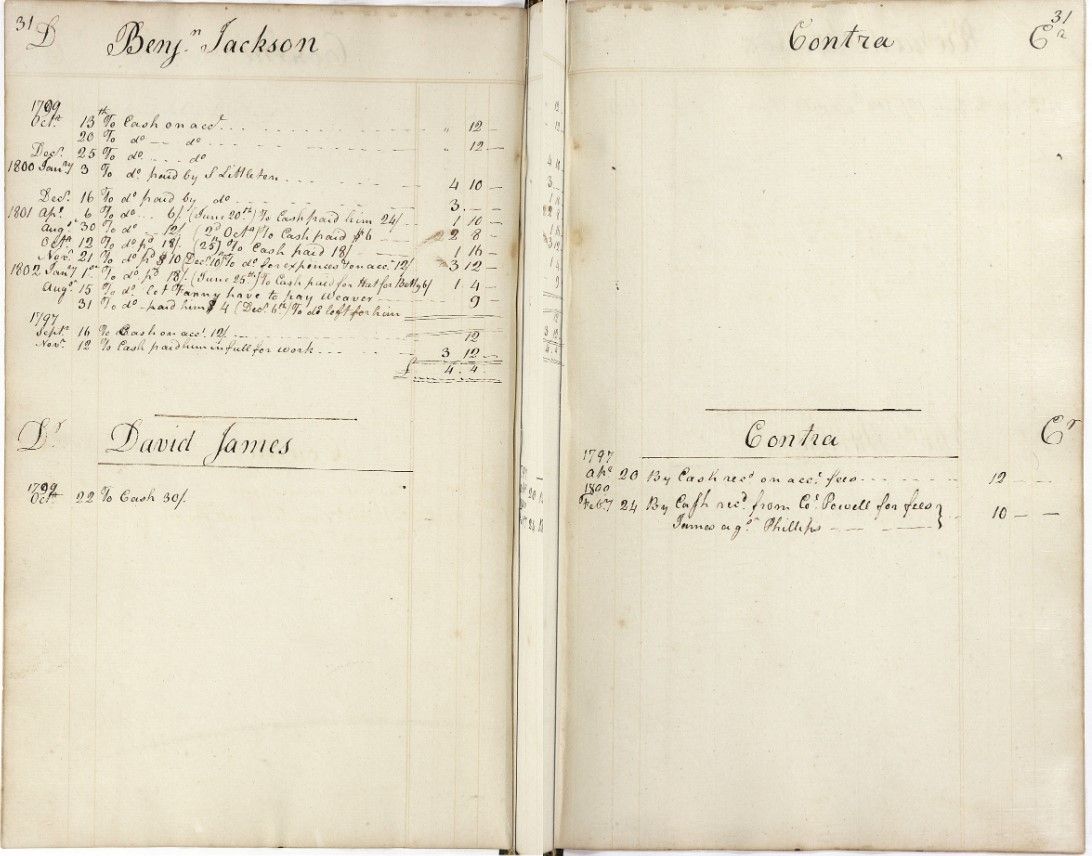 31 D Benj.n Jackson
1799
Oct.r 13th To Cash on acct. " 12 –
20 To do – do " 12 –
Decr. 25 To do do
1800 Jany 3 To do paid by S Littleton 4 10 –
Decr. 16 To do paid by do 3 –
1801 Apl. 6 To do 6/ (June 20th) To Cash paid him 24/ 1 10 –
Augt 30 To do 12/ (2d Octr) To Cash paid $6 2 8 –
Octr. 12 To do pd 18/. (25th) To Cash paid 18/ 1 16 –
Novr. 21 To do pd $10 Decr. 10th To do for expences & on acct. 12/ 3 12 –
1802 Jany 1st To do pd 18/. (June 25th) To Cash paid for Hat for Betty 6/ 1 4 –
Augt. 15 To do let Fanny have to pay Weaver 9 –
31 To do paid him $4 (Decr. 6th) To do left for him
1797
Septr 16 To Cash on acct. 12/ 12
Novr. 12 To Cash paid him in full for work 3 12 –
£ 4 .. 4 ..
Dr David James
1799
Octr 22 To Cash 30/.
Contra 31 Cr
Contra Cr
1797
Apl 20 By Cash recd on acct. fees 12 – –
1800
Feby 24 By Cash recd. from Co. Powell for fees } 10 – –
James agst Phillips